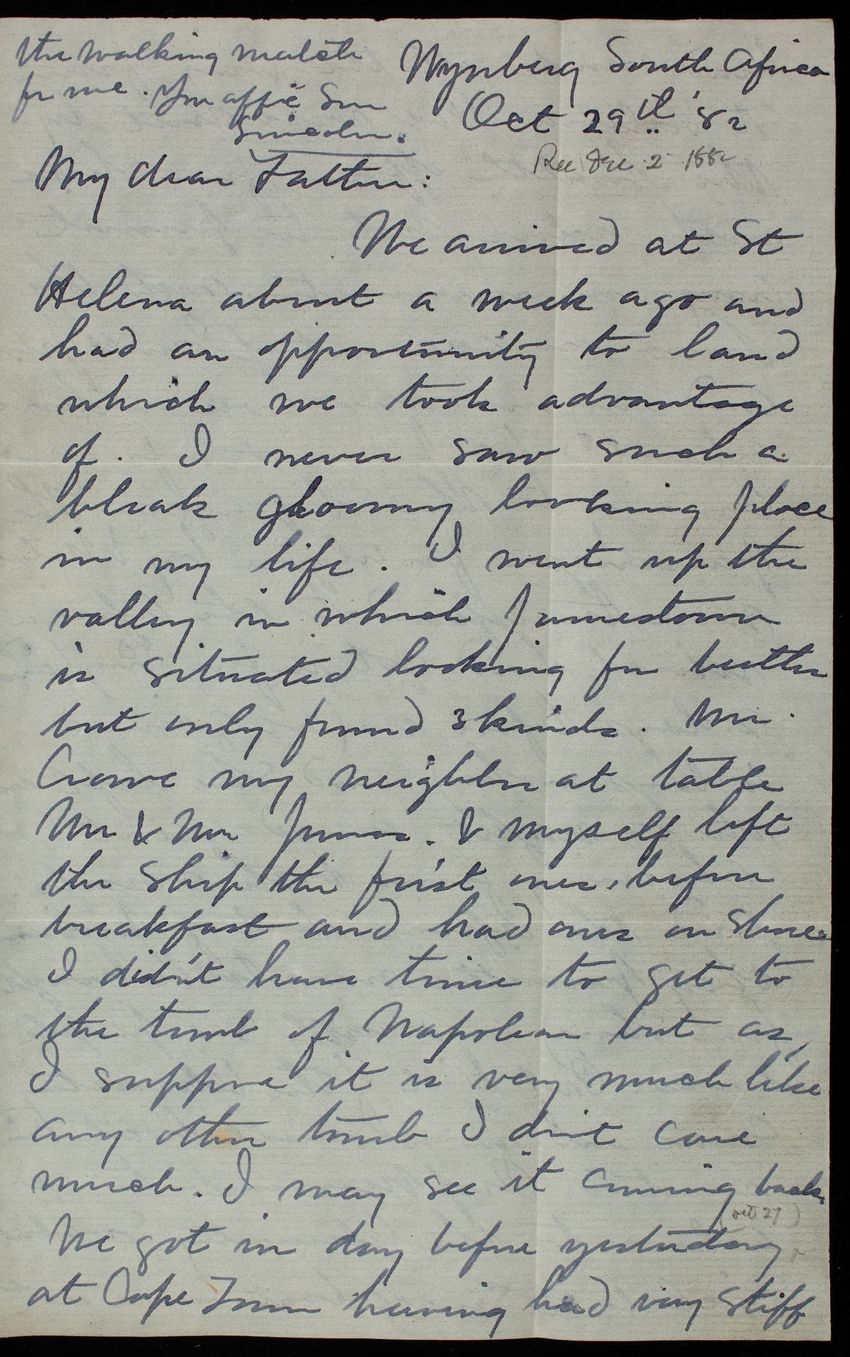 the walking match
for me. Your affe son
Lincoln.
Wynberg South Africa
Oct 29th '82
Rec Dec 2 1882
My dear Father:
We arrived at St
Helena about a week ago and
had an opportunity to land
which we took advantage
of. I never saw such a
bleak gloomy looking place
in my life. I went up the
valley in which Jamestown
is situated looking for beetles
but only found 3 kinds. Mr.
Crowe my neighbor at table
Mr & Mrs & myself left
the ship the first ones, before
breakfast and had ours on shore
I didn't have time to get to
the tomb of Napolean but as,
I suppose it is very much like
any other tomb I don't care
much. I may see it coming back.
(Oct 27)
We got in day before yesterday
at Cape Town having had very stiff